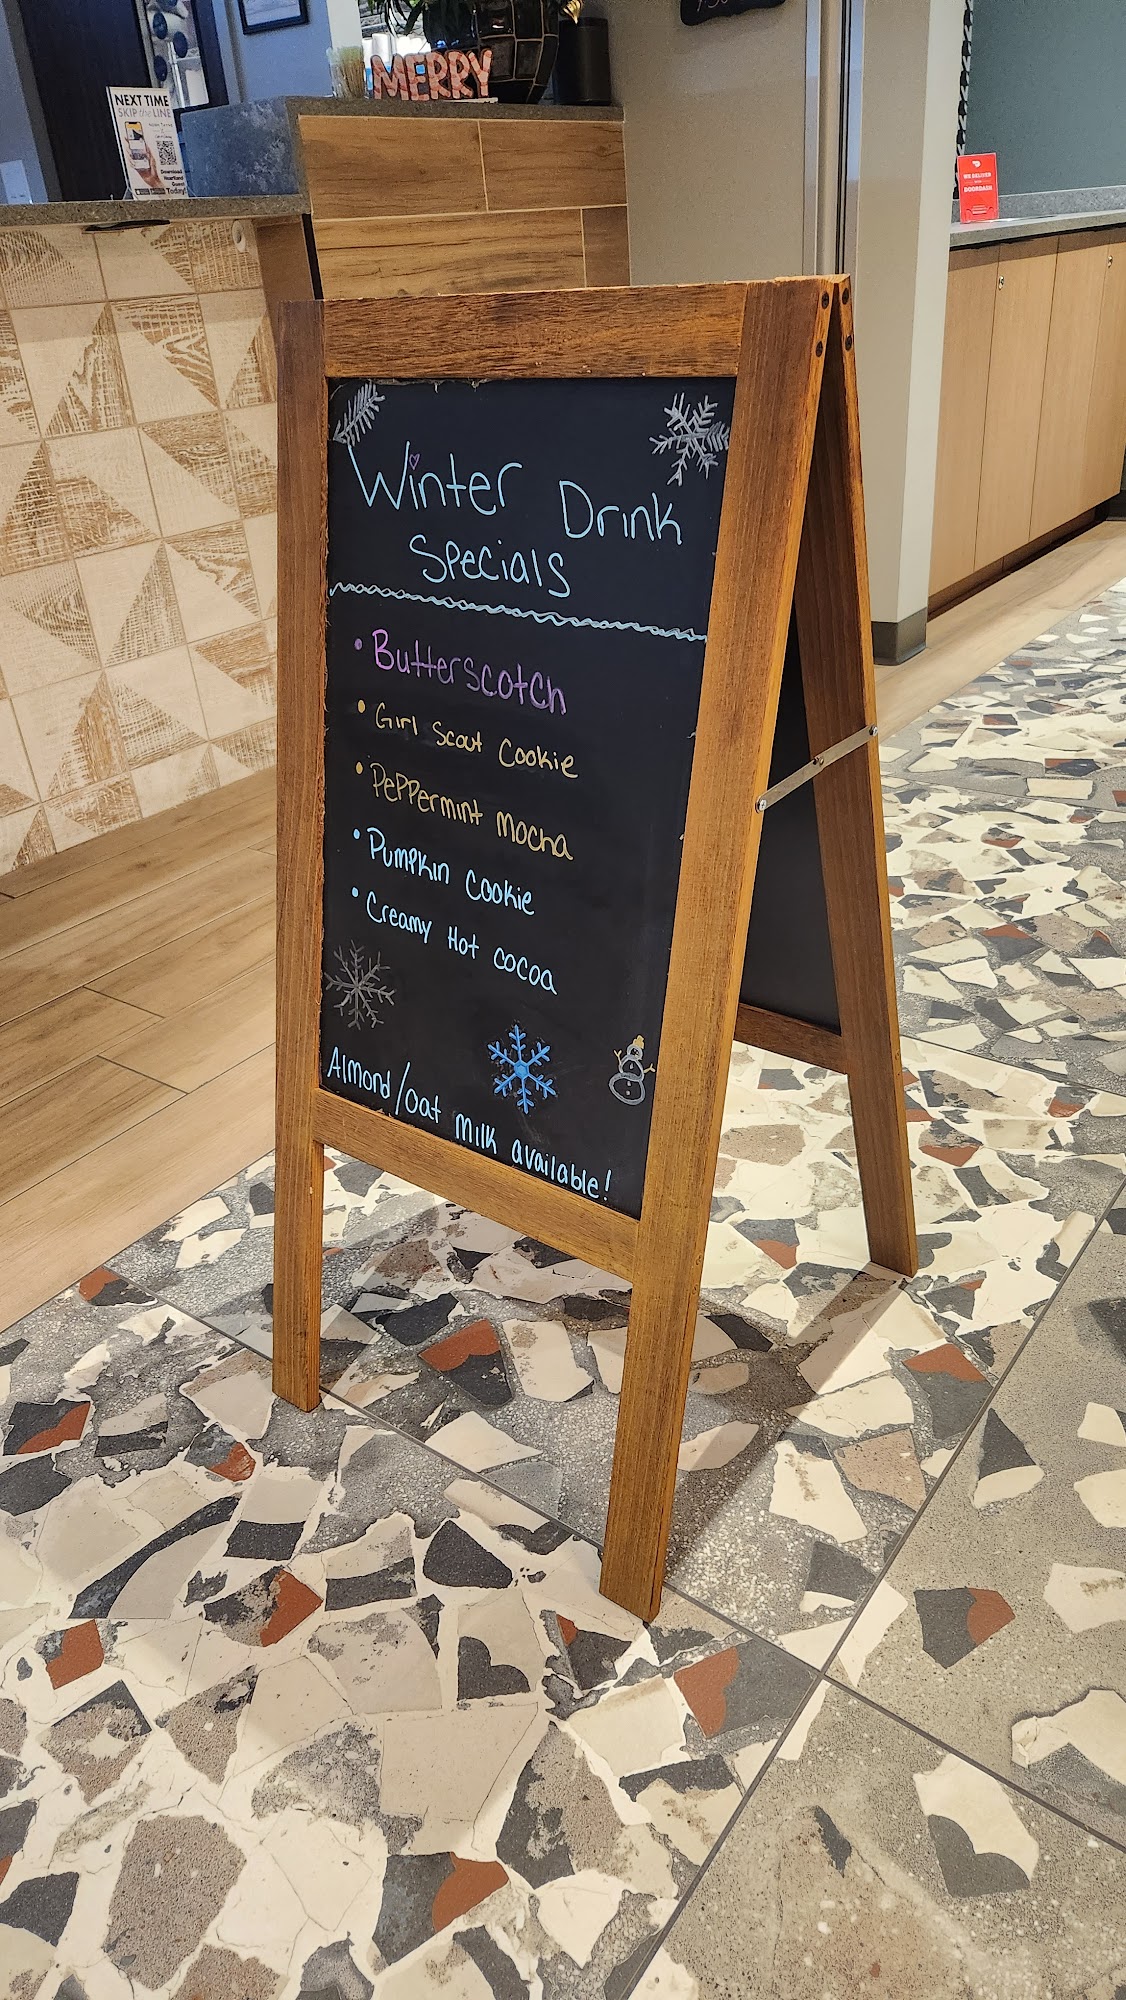 MERRY
NEXT TIME
SKIP the LINE
Download
Heartland
Guest
Today!
WE DELIVER
DOORDASH
Winter Drink
Specials
• Butterscotch
• Girl Scout Cookie
• Peppermint Mocha
• Pumpkin Cookie
• Creamy Hot cocoa
Almond/oat milk available!